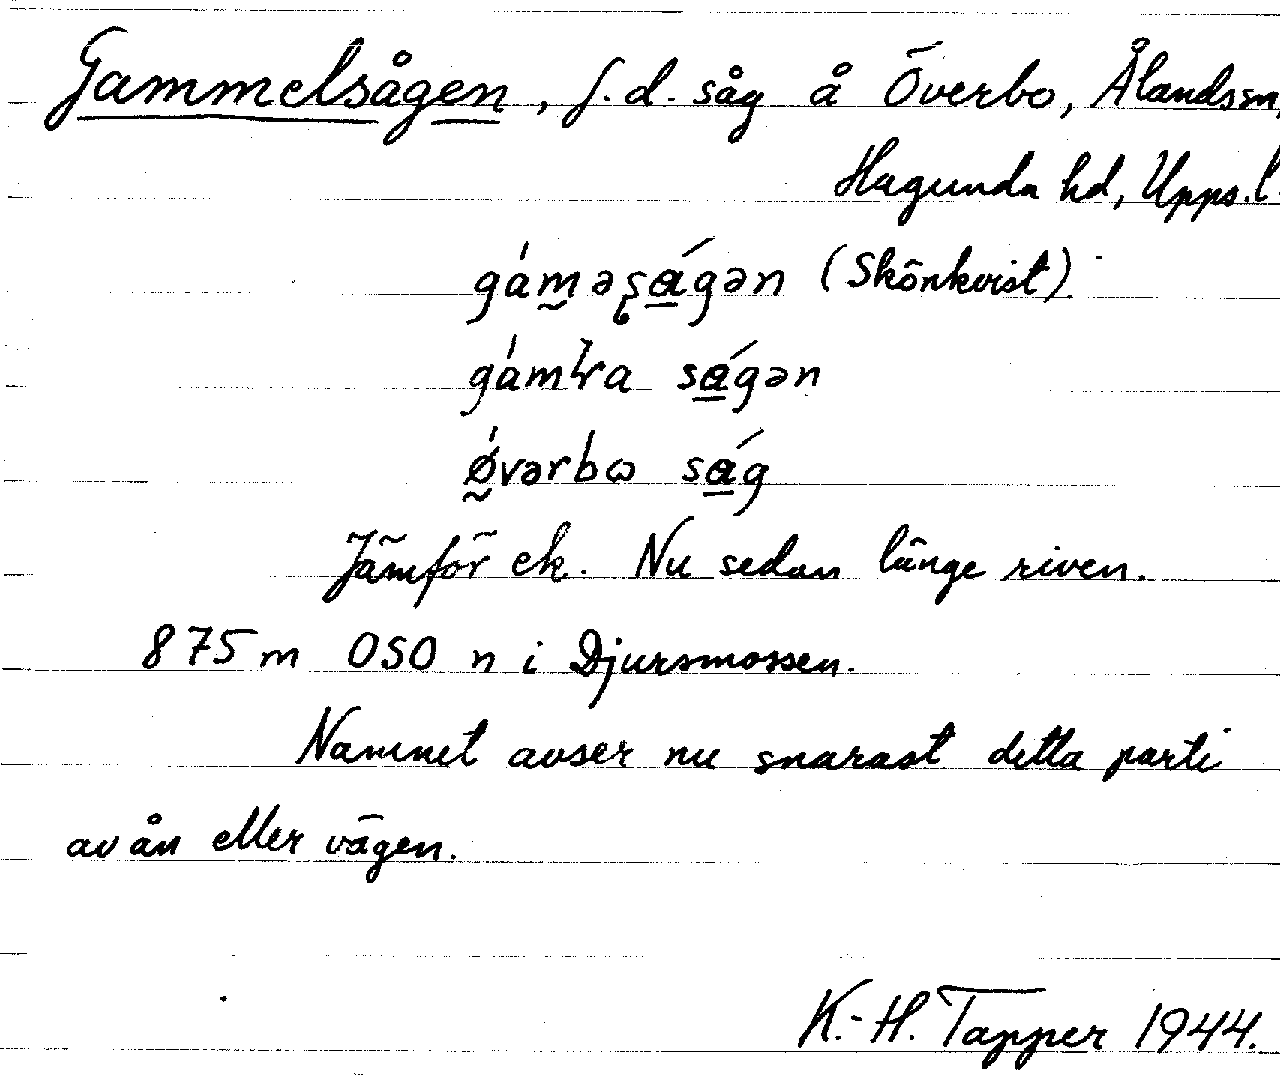 Gammelsågen, f.d. såg å Överbo, Ålandssn,
Hagunda hd, Upps.l.
gáməʂågən (Skönkvist).
gámɫa sågən
ǿvərbω såg
Jämför ek. Nu sedan länge riven.
875 m OSO n i Djursmossen.
Namnet avser nu snarast detta parti
av ån eller vägen.
K.-H. Tapper 1944.